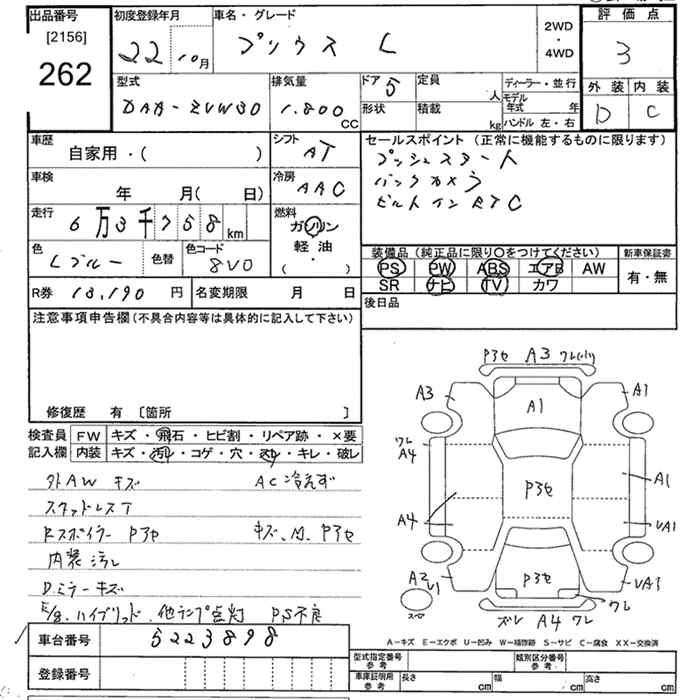 出品番号 初度登録年月 車名・グレード 2WD・4WD 評価点
[2156]
262
22 10月 プリウス L 3
型式 排気量 ドア 5 定員 人 ディーラー・並行 外装 内装
DAA-ZVW30 1.800 CC 形状 積載 kg モデル年式 年 D C
ハンドル 左・右
車歴 シフト セールスポイント(正常に機能するものに限ります)
自家用・( ) AT プッシュスタート
車検 冷房 バックカメラ
年 月( 日) AAC ビルトインETC
走行 燃料
6万3千758km ガソリン
軽油
・( )
色 色替 色コード 装備品(純正品に限り〇をつけてください) 新車保証書
Lブルー 8V0 PS PW ABS エアB AW 有・無
SR ナビ TV カワ
R券 13,190円 名変期限 月 日 後日品
注意事項申告欄(不具合内容等は具体的に記入して下さい)
修復歴 有 [箇所 ]
検査員 FW キズ・飛石・ヒビ割・リペア跡・×要
記入欄 内装 キズ・汚レ・コゲ・穴・スレ・キレ・破レ
外AW キズ AC冷えず
スタッドレスT
Rスポイラー P3セ キズ、凹、P3セ
内装 汚レ
Dミラーキズ
E/g、ハイブリッド、他ランプ点灯 PS不良
P3セ A3 ワレ
A3 A1 A1
ワレ A4 P3セ A1
A4 UA1
A2 U1 P3セ UA1
ワレ
スペア ズレ A4 ワレ
A-キズ E-エクボ U-凹み W-補修跡 S-サビ C-腐食 XX-交換済
車台番号 5223898
登録番号
型式指定番号 参考 類別区分番号 参考
車庫証明用 参考 長さ cm 幅 cm 高さ cm